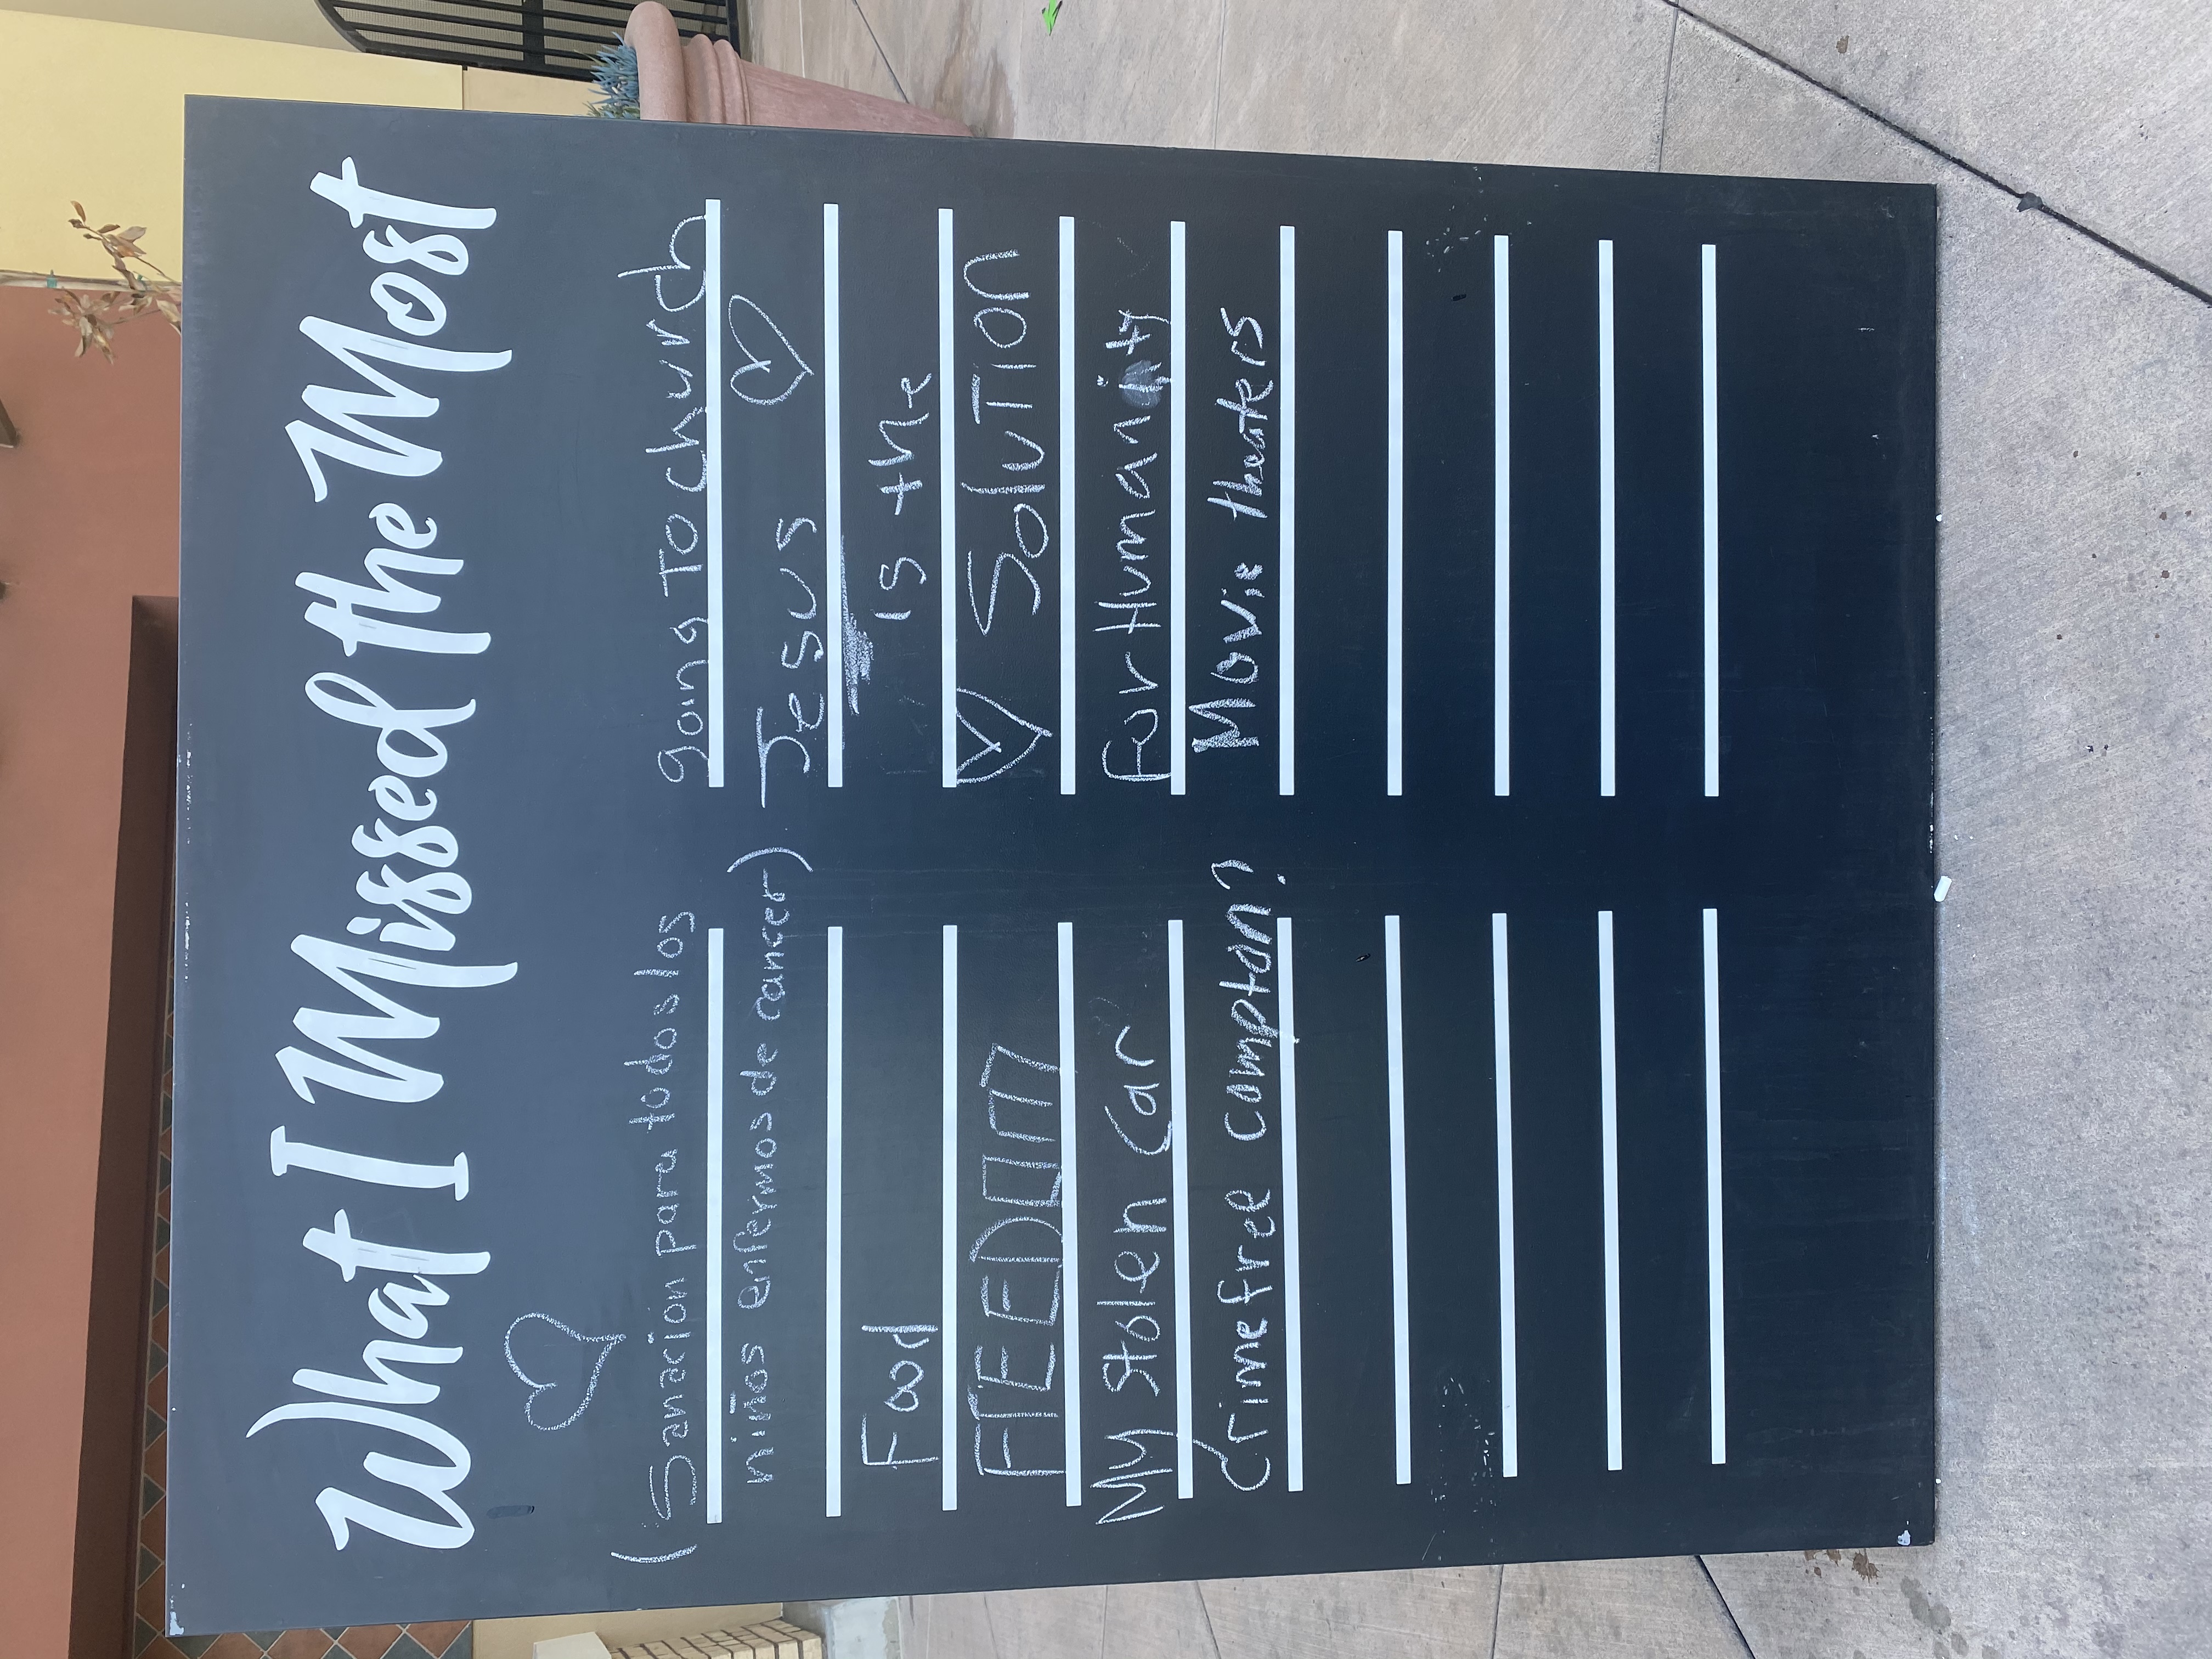 What I Missed the Most
(Sanacion para todos los
niños enfermos de cancer)
Food
FREEDOM
My Stolen Car
Crime free Compton?
going To church
Jesus
is the
Solution
For Humanity
Movie theaters